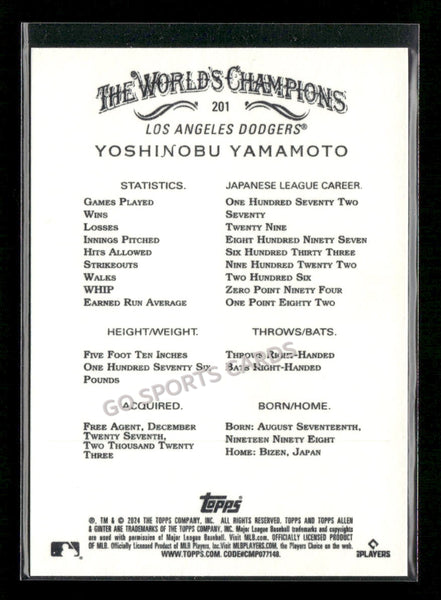 THE WORLD'S CHAMPIONS
201
LOS ANGELES DODGERS®
YOSHINOBU YAMAMOTO
STATISTICS. JAPANESE LEAGUE CAREER.
GAMES PLAYED ONE HUNDRED SEVENTY TWO
WINS SEVENTY
LOSSES TWENTY NINE
INNINGS PITCHED EIGHT HUNDRED NINETY SEVEN
HITS ALLOWED SIX HUNDRED THIRTY THREE
STRIKEOUTS NINE HUNDRED TWENTY TWO
WALKS TWO HUNDRED SIX
WHIP ZERO POINT NINETY FOUR
EARNED RUN AVERAGE ONE POINT EIGHTY TWO
HEIGHT/WEIGHT. THROWS/BATS.
FIVE FOOT TEN INCHES THROWS RIGHT-HANDED
ONE HUNDRED SEVENTY SIX BATS RIGHT-HANDED
POUNDS
GO SPORTS CARDS
ACQUIRED. BORN/HOME.
FREE AGENT, DECEMBER BORN: AUGUST SEVENTEENTH,
TWENTY SEVENTH, NINETEEN NINETY EIGHT
TWO THOUSAND TWENTY HOME: BIZEN, JAPAN
THREE
Topps
®, TM & © 2024 THE TOPPS COMPANY, INC. ALL RIGHTS RESERVED. TOPPS AND TOPPS ALLEN
& GINTER ARE TRADEMARKS OF THE TOPPS COMPANY, INC. Major League Baseball trademarks and copyrights
are used with permission of Major League Baseball. Visit MLB.com. OFFICIALLY LICENSED PRODUCT
OF MLB. Officially Licensed Product of MLB Players, Inc. Visit MLBPLAYERS.com, the Players Choice on the web.
WWW.TOPPS.COM. CODE#CMP077140.
PLAYERS